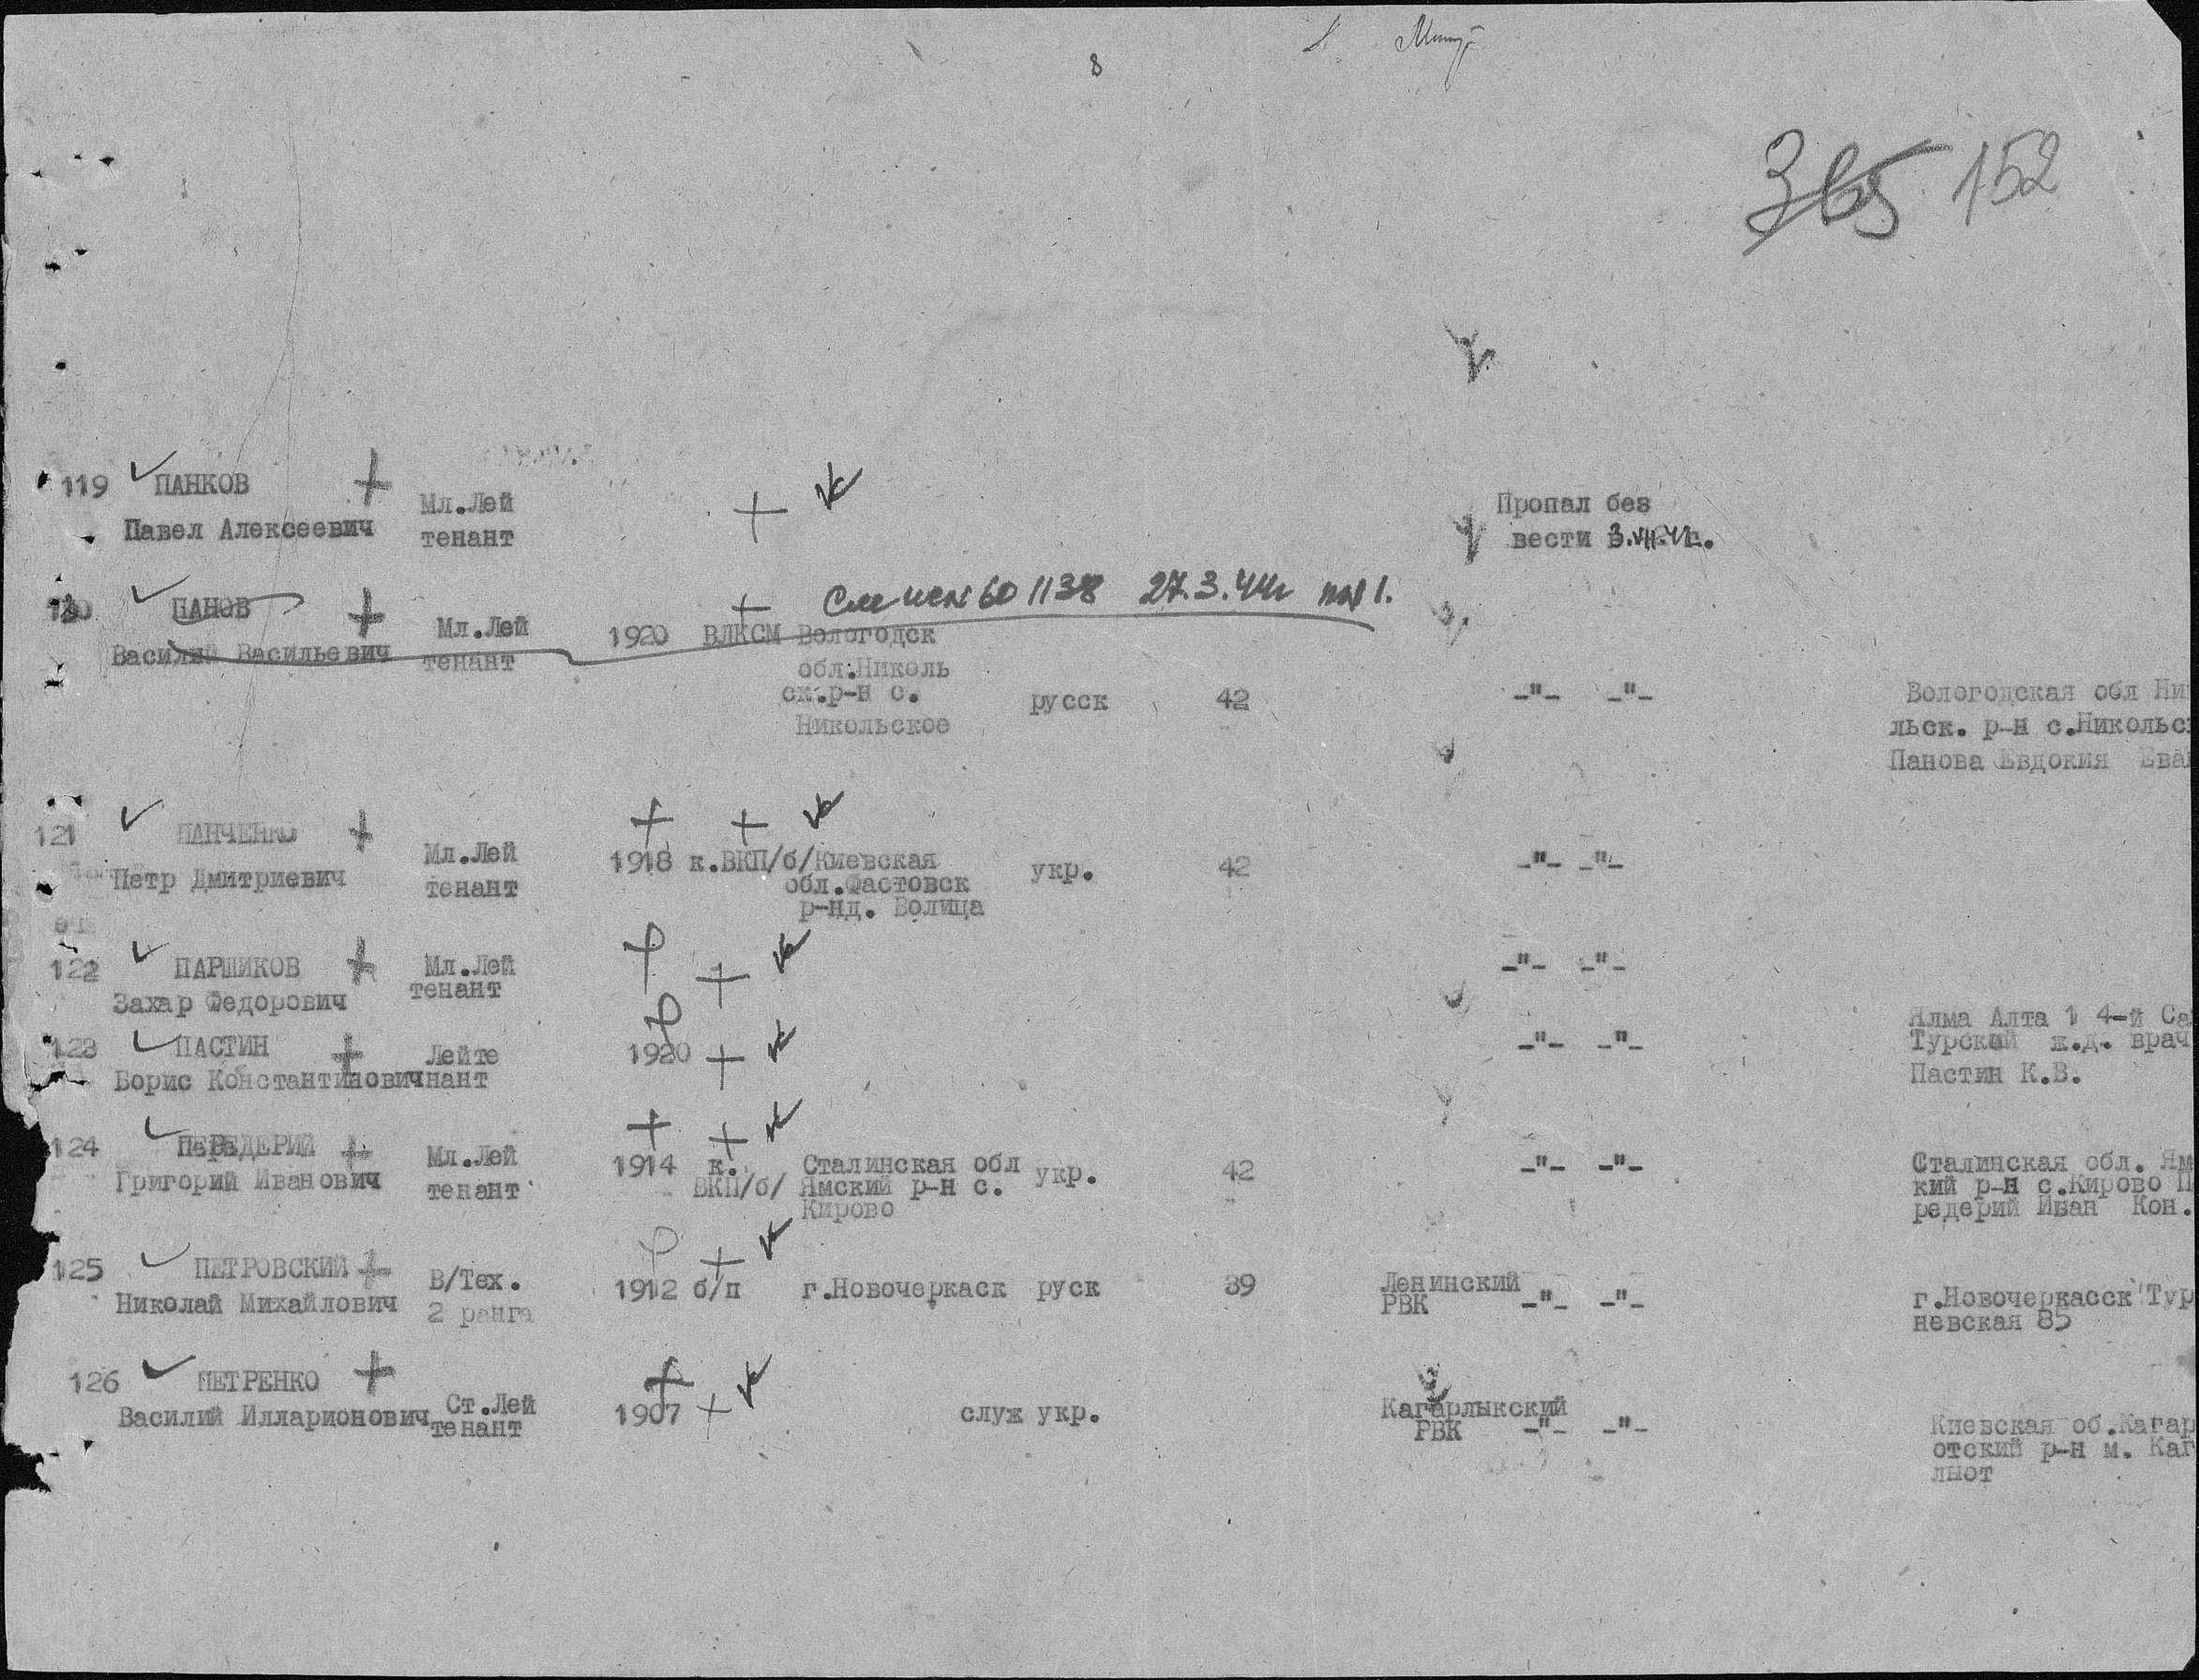 8
365 152
119 ПАНКОВ
Павел Алексеевич
Мл.Лей
тенант
Пропал без
вести 3.VII.41г.
120 ПАНОВ
Василий Васильевич
Мл.Лей
тенант
1920 ВЛКСМ Вологодск
обл.Николь
ск.р-н с.
Никольское
27.3.44г
русск
42
-"- -"-
Вологодская обл Ни
льск. р-н с.Никольс
Панова Евдокия Ева
121 ПАНЧЕНКО
Петр Дмитриевич
Мл.Лей
тенант
1918 к.ВКП/б/Киевская
обл.Фастовск
р-нд. Волица
укр.
42
-"- -"-
122 ПАРШИКОВ
Захар Федорович
Мл.Лей
тенант
-"- -"-
123 ПАСТИН
Борис Константинович
Лейте
нант
1920
-"- -"-
Алта 1 4-й Са
Турский ж.д. врач
Пастин К.В.
124 ПЕРЕДЕРИЙ
Григорий Иванович
Мл.Лей
тенант
1914 к.
ВКП/б/
Сталинская обл
Ямский р-н с.
Кирово
укр.
42
-"- -"-
Сталинская обл. Ям
кий р-н с.Кирово П
редерий Иван Кон.
125 ПЕТРОВСКИЙ
Николай Михайлович
В/Тех.
2 ранга
1912 б/п г.Новочеркаск руск 39
Ленинский
РВК -"- -"-
г.Новочеркасск Тур
невская 85
126 ПЕТРЕНКО
Василий Илларионович
Ст.Лей
тенант
1907 служ укр.
Кагарлыкский
РВК -"- -"-
Киевская об.Кагар
отский р-н м. Каг
лнот